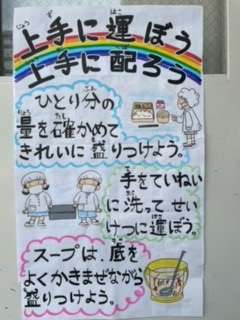 上手に運ぼう
上手に配ろう
ひとり分の
量を確かめて
きれいに盛りつけよう。
手をていねい
に洗ってせい
けつに運ぼう。
スープは、底を
よくかきまぜながら
盛りつけよう。